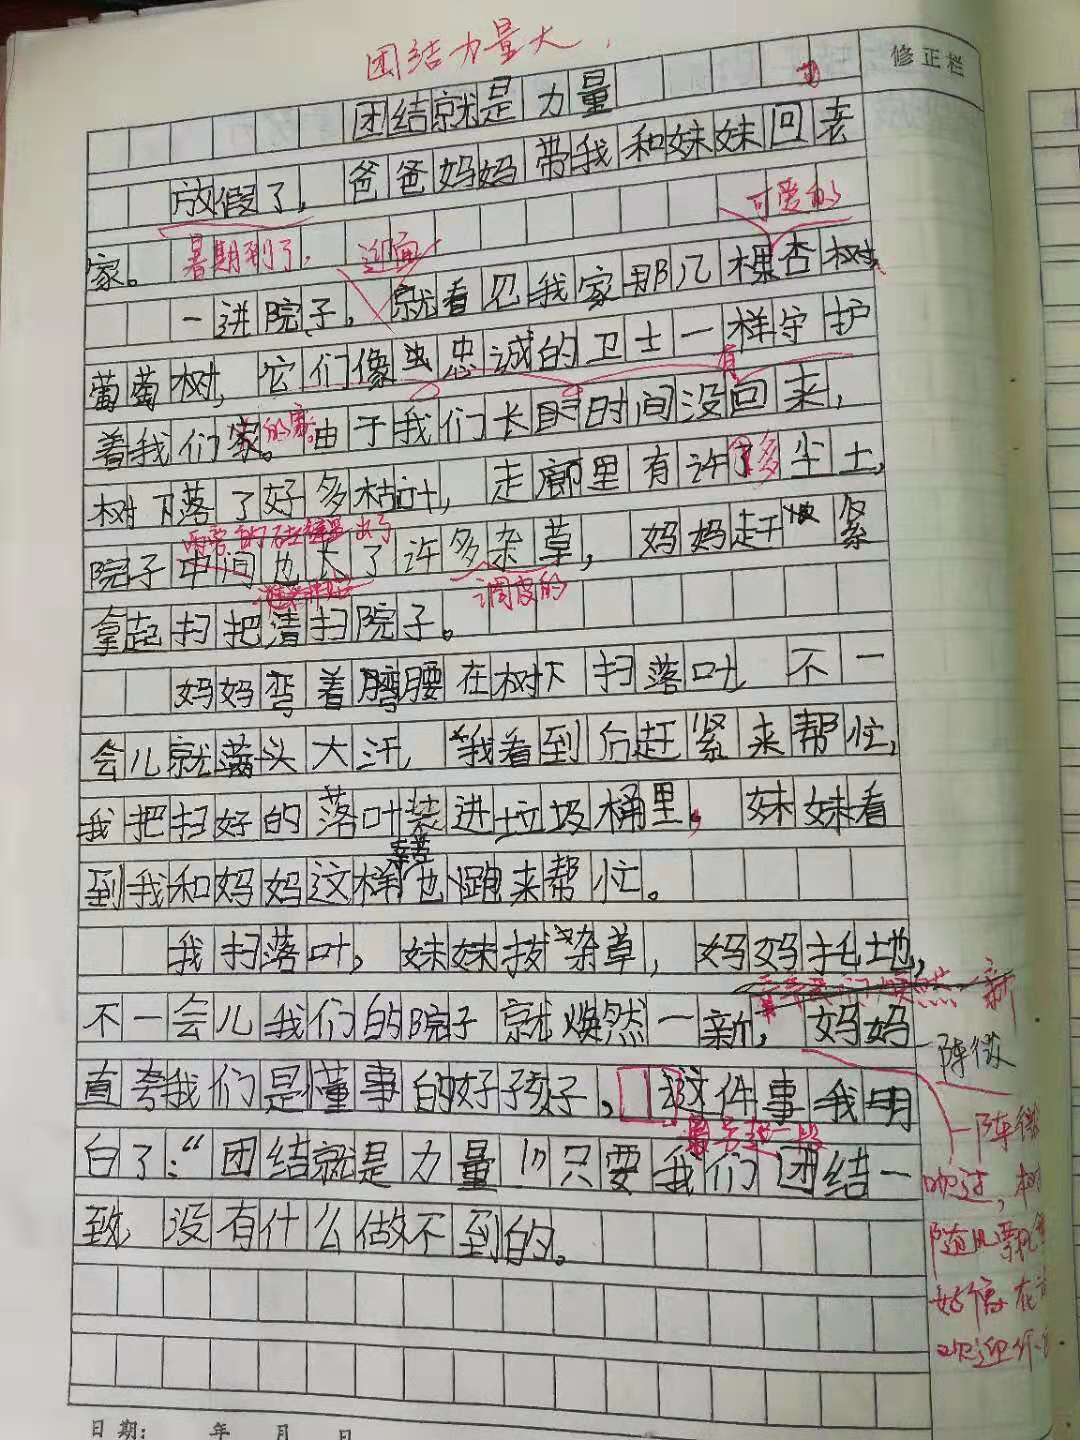 团结力量大，
修正栏
团结就是力量
放假了，爸爸妈妈带我和妹妹回老
可爱的
家。暑期到了，迎面
一进院子，就看见我家那几棵杏树
葡萄树，它们像忠诚的卫士一样守护
有
着我们家。的家。由于我们长时时间没回来，
树下落了好多枯叶，走廊里有许多尘土，
院子中间也长了许多杂草，妈妈赶紧
调皮的
拿起扫把清扫院子。
妈妈弯着腰在树下扫落叶 不一
会儿就满头大汗，我看到后赶紧来帮忙，
我把扫好的落叶装进垃圾桶里，妹妹看
辛苦
到我和妈妈这样也跑来帮忙。
我扫落叶，妹妹拔杂草，妈妈扫地，
一新
不一会儿我们的院子就焕然一新，妈妈
一阵微
直夸我们是懂事的好孩子，这件事我明
一阵微
另起一段
白了：“团结就是力量”只要我们团结一
吹过，树
致，没有什么做不到的。
随风飘
好像在
欢迎你
日期： 年 月 日